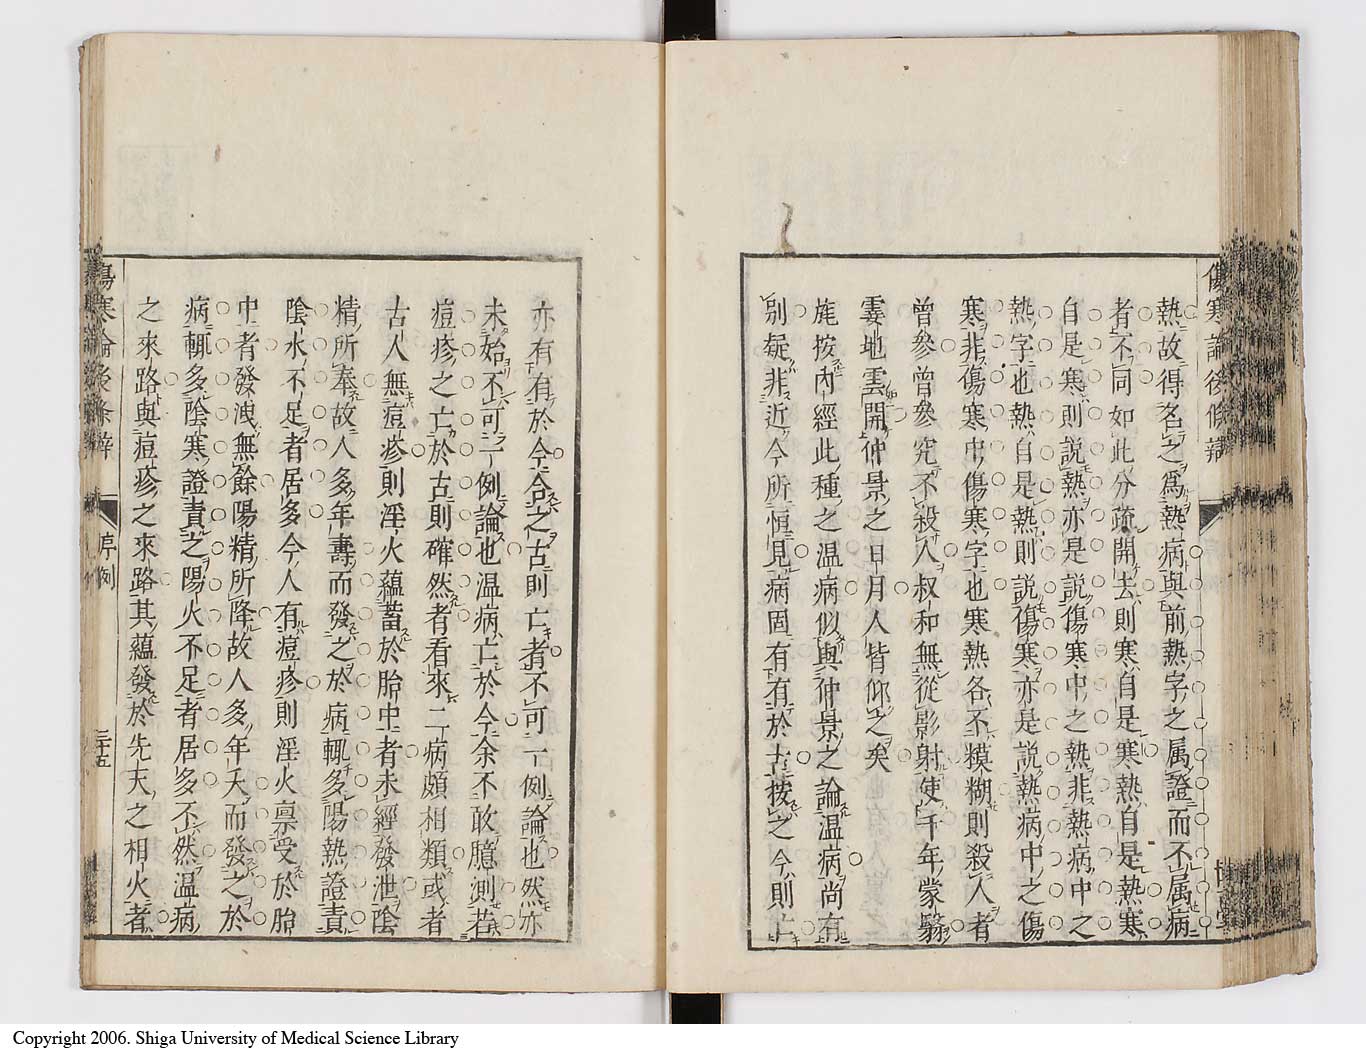 傷寒論後條辨
熱故得名之爲熱病與前熱字之属證而不属病
者不同如此分疏開去則寒自是寒熱自是熱寒
自是寒則説熱亦是説傷寒中之熱非熱病中之
熱字也熱自是熱則説傷寒亦是説熱病中之傷
寒非傷寒中傷寒字也寒熱各不糢糊則殺人者
曾參曾參究不殺人叔和無從影射使千年蒙翳
霎地雲開仲景之日月人皆仰之矣
旄按內經此種之温病似與仲景之論温病尚有
別疑非近今所恒見病固有有於古按之今則亡
亦有有於今合之古則亡者不可一例論也然亦
未始不可一例論也温病亡於今余不敢臆測若
痘疹之亡於古則確然者看來二病頗相類或者
古人無痘疹則淫火蘊蓄於胎中者未經發泄陰
精所奉故人多年壽而發之於病輒多陽熱證責
陰水不足者居多今人有痘疹則淫火禀受於胎
中者發洩無餘陽精所降故人多年夭而發之於
病輒多陰寒證責之陽火不足者居多不然温病
之來路與痘疹之來路其蘊發於先天之相火者
傷寒論後條辨
序例
二十五
Copyright 2006. Shiga University of Medical Science Library